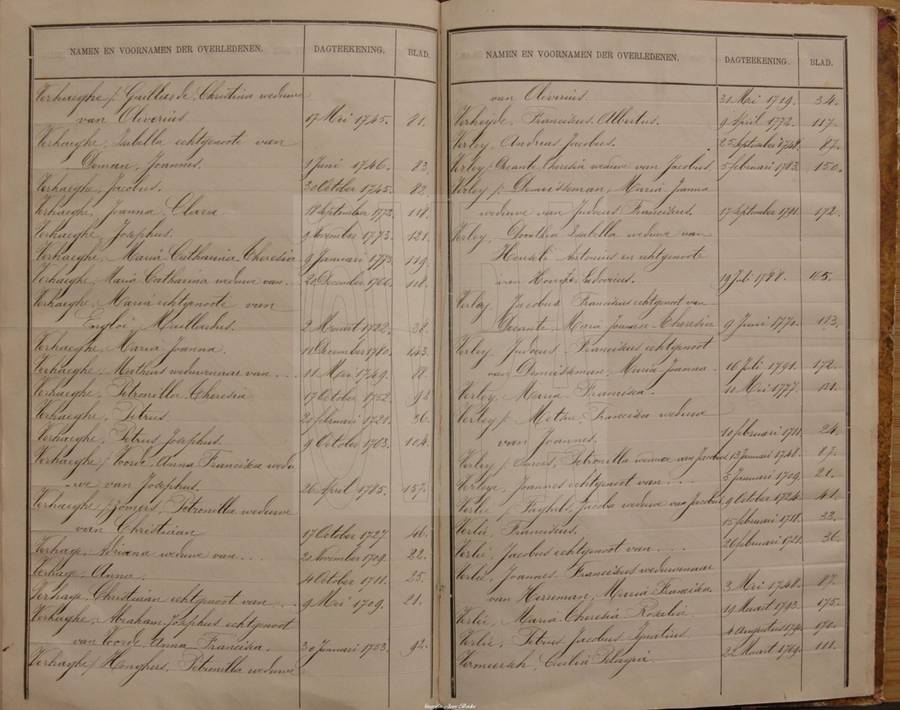 NAMEN EN VOORNAMEN DER OVERLEDENEN. DAGTEEKENING. BLAD.
Verhaeghe p/ Guillaede, Christina weduwe
van Oliverius 17 Mei 1745. 81.
Verhaeghe, Isabella echtgenoote van
Deman, Joannes. 1 Juni 1746. 83.
Verhaeghe, Jacobus. 30 October 1745. 82
Verhaeghe, Joanna Clara. 18 September 1772. 118.
Verhaeghe, Josephus. 9 November 1773. 121.
Verhaeghe, Maria Catharina Theresia 9 Januari 1773 119.
Verhaeghe, Maria Catharina weduwe van ... 20 December 1766. 118.
Verhaeghe, Maria echtgenoote van
Engloi, Maillardus. 2 Maart 1722. 38.
Verhaeghe, Maria Joanna. 18 December 1780. 143.
Verhaeghe, Matheus weduwenaar van ... 11 Mei 1749. 18
Verhaeghe, Petronella Theresia 17 October 1752. 92
Verhaeghe, Petrus 20 februari 1721. 36.
Verhaeghe, Petrus Josephus. 9 October 1763. 104.
Verhaeghe p/ Voorde, Anna Francisca wedu
-we van Josephus. 26 April 1785. 157.
Verhaeghe p/ Zomers, Petronilla weduwe
van Christiaan 17 October 1727. 46.
Verhage, Adriana weduwe van ... 20 November 1709. 22.
Verhage, Anna. 4 October 1711. 25.
Verhage, Christiaan echtgenoot van ... 9 Mei 1709. 21.
Verhaghe, Abraham Josephus echtgenoot
van Voorde Anna Francisca. 30 Januari 1753. 92.
Verhaghe p/ Honghers, Petronilla weduwe
NAMEN EN VOORNAMEN DER OVERLEDENEN. DAGTEEKENING. BLAD.
van Oliverius. 31 Mei 1719. 34.
Verheyde, Franciscus Albertus. 9 April 1772. 117.
Verley, Andreas Jacobus. 23 September 1748. 87.
Verley p/ Decante Theresia weduwe van Jacobus 5 februari 1783. 150.
Verley p/ Demeisteman, Maria Joanna
weduwe van Judocus Franciscus. 17 September 1791. 172.
Verley, Dorothea Isabella weduwe van
Antonius en echtgenoote
van Ludovicus. 19 Juli 1788. 165.
Verley, Jacobus Franciscus echtgenoot van
Decante, Maria Joanna Theresia 9 Juni 1770. 113.
Verley, Judocus Franciscus echtgenoot
van Demeisteman, Maria Joanna. 16 Juli 1791. 172.
Verley, Maria Francisca. 11 Mei 1777. 131.
Verley p/ Metsu, Francisca weduwe
van Joannes. 10 februari 1711. 24.
Verley p/ Petronella weduwe van Jacobus 13 Januari 1748. 87.
Verleye, Joannes echtgenoot van ... 5 Januari 1709. 21.
Verlie p/ Jacoba weduwe van Jacobus 9 October 1724. 41.
Verlie, Franciscus. 15 februari 1718. 33.
Verlie, Jacobus echtgenoot van .... 26 februari 1721. 36.
Verlie, Joannes Franciscus weduwenaar
van Herseman, Maria Francisca. 3 Mei 1748. 87.
Verlie, Maria Theresia Rosalia 19 Maart 1793. 175.
Verlie, Petrus Jacobus Ignatius. 4 Augustus 1790. 170.
Vermeersch, Cecilia Pelagia 22 Maart 1769. 111.